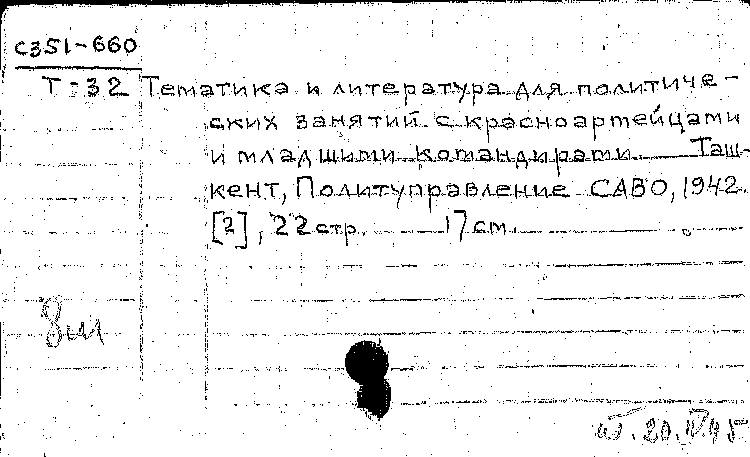 С351-660
Т-32 Тематика и литература для политиче-
ских занятий с красноартейцами
и младшими командирами. Таш-
кент, Политуправление САВО, 1942.
[2], 22 стр. 17 см.
8ил
20.IV.45